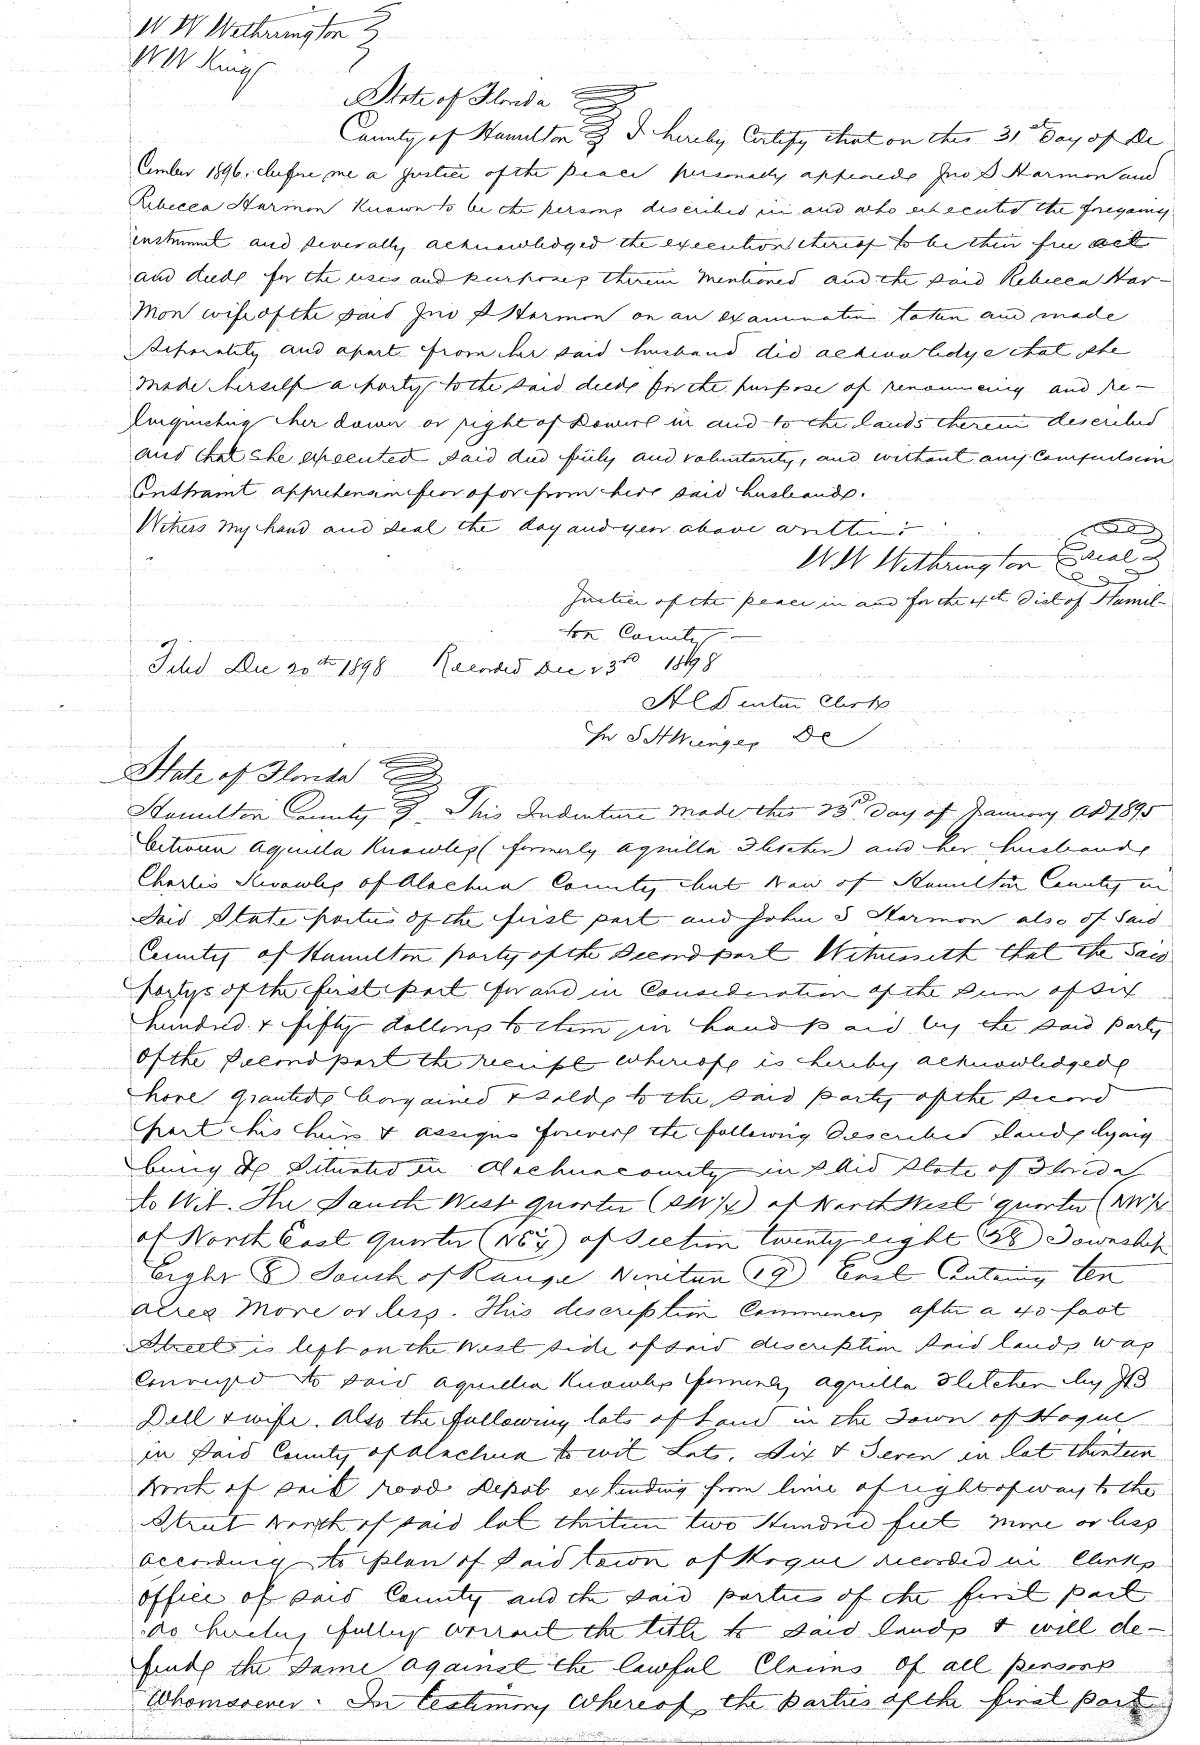 W W Wethrington
W W King
State of Florida
County of Hamilton I hereby Certify that on this 31st Day of De
cember 1896. before me a Justice of the peace personally appeared Jno S Harmon and
Rebecca Harmon Known to be the persons described in and who executed the foregoing
instrument and severally acknowledged the execution thereof to be their free act
and deed for the uses and purposes therein mentioned and the said Rebecca Har-
mon wife of the said Jno S Harmon on an examination taken and made
Separately and apart from her said husband did acknowledge that she
made herself a party to the said deed for the purpose of renouncing and re-
linquishing her dower or right of Dower in and to the lands therein described
and that she executed said deed freely and voluntarily, and without any Compulsion
Constraint apprehension fear of or from her said husband.
Witness my hand and seal the day and year above written:
W W Wethrington Seal
Justice of the peace in and for the 4th Dist of Hamil-
ton County
Filed Dec 20th 1898 Recorded Dec 23rd 1898
Clerk
DC
State of Florida
Hamilton County This Indenture made this 23rd Day of January AD 1895
between Aquilla Knowles (formerly Aquilla Fletcher) and her husband
Charlis Knowles of Alachua County but now of Hamilton County in
Said State parties of the first part and John S Harmon also of Said
County of Hamilton party of the Second part Witnesseth that the Said
partys of the first part for and in Consideration of the Sum of Six
hundred & fifty dollars to them in hand paid by the said party
of the Second part the receipt whereof is hereby acknowledged
have granted bargained & sold to the said party of the second
part his heirs & assigns forever the following described land lying
being & Situated in Alachua county in said State of Florida
to Wit. The South West quarter (SW 1/4) of North West quarter (NW 1/4
of North East quarter (NE 1/4) of Section twenty eight (28) Township
Eight (8) South of Range Ninetun (19) East Containg ten
acres more or less. This description Commences after a 40 foot
Street is left on the West side of said description Said lands was
Conveyed to said Aquilla Knowles formerly Aquilla Fletcher by JB
Dell & wife. Also the following lots of Land in the Town of Hague
in Said County of Alachua to wit Lots. Six & Seven in lot thirteen
North of rail road Depot extending from line of right of way to the
Street North of said lot thirteen two Hundred feet more or less
according to plan of Said town of Hague recorded in Clerks
office of said County and the said parties of the first part
do hereby fully warrant the title to said lands & will de-
fend the same against the lawful Claims of all persons
Whomsoever. In testimony Whereof the parties of the first part